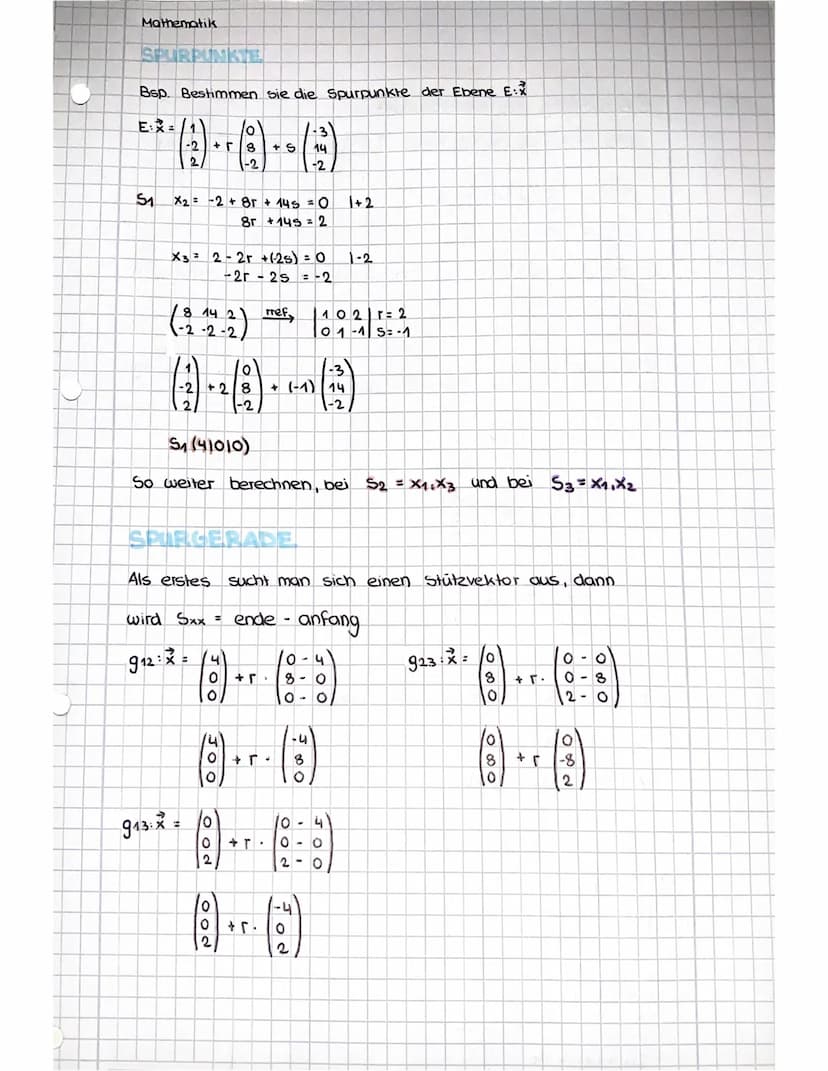 Mathematik
SPURPUNKTE
Bsp. Bestimmen sie die Spurpunkte der Ebene E:x⃗
E:x⃗ = (1 -2 2) + r (0 8 -2) + s (-3 14 -2)
S1 x2 = -2 + 8r + 14s = 0 |+2
8r + 14s = 2
x3 = 2 - 2r +(-2s) = 0 |-2
-2r - 2s = -2
(8 14 2) rref→ |1 0 2| r = 2
(-2 -2 -2) |0 1 -1| s = -1
(1 -2 2) + 2 (0 8 -2) + (-1) (-3 14 -2)
S1 (4|0|0)
So weiter berechnen, bei S2 = x1,x3 und bei S3 = x1,x2
SPURGERADE
Als erstes sucht man sich einen Stützvektor aus, dann
wird Sxx = ende - anfang
g12:x⃗ = (4 0 0) + r · (0 - 4 8 - 0 0 - 0)
(4 0 0) + r · (-4 8 0)
g23:x⃗ = (0 8 0) + r · (0 - 0 0 - 8 2 - 0)
(0 8 0) + r (0 -8 2)
g13:x⃗ = (0 0 2) + r · (0 - 4 0 - 0 2 - 0)
(0 0 2) + r · (-4 0 2)